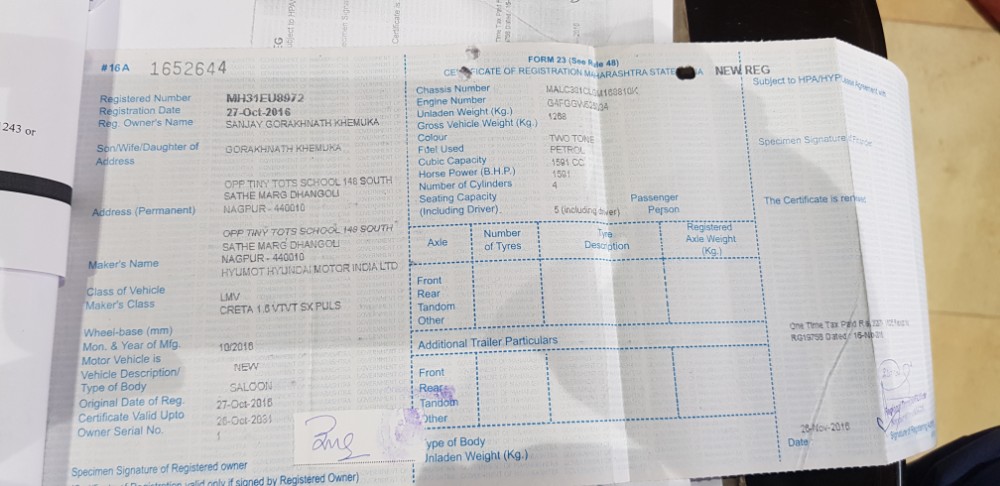 FORM 23 (See Rule 48)
#16A 1652644
CERTIFICATE OF REGISTRATION MAHARASHTRA STATE NEW REG
Registered Number MH31EU8972
Registration Date 27-Oct-2016
Reg. Owner's Name SANJAY GORAKHNATH KHEMUKA
Son/Wife/Daughter of GORAKHNATH KHEMUKA
Address
OPP TINY TOTS SCHOOL 148 SOUTH
SATHE MARG DHANGOLI
Address (Permanent) NAGPUR - 440010
OPP TINY TOTS SCHOOL 148 SOUTH
SATHE MARG DHANGOLI
NAGPUR - 440010
Maker's Name HYUMOT HYUNDAI MOTOR INDIA LTD
Class of Vehicle LMV
Maker's Class CRETA 1.6 VTVT SX PULS
Wheel-base (mm)
Mon. & Year of Mfg. 10/2016
Motor Vehicle is NEW
Vehicle Description/
Type of Body SALOON
Original Date of Reg. 27-Oct-2016
Certificate Valid Upto 26-Oct-2031
Owner Serial No. 1
Specimen Signature of Registered owner
Registration valid only if signed by Registered Owner)
Chassis Number
Engine Number
Unladen Weight (Kg.) 1268
Gross Vehicle Weight (Kg.)
Colour TWO TONE
Fuel Used PETROL
Cubic Capacity 1591 CC
Horse Power (B.H.P.) 1591
Number of Cylinders 4
Seating Capacity Passenger
(Including Driver) 5 (including driver) Person
Axle Number of Tyres Tyre Description Registered Axle Weight (Kg.)
Front
Rear
Tandom
Other
Additional Trailer Particulars
Front
Rear
Tandom
Other
Type of Body
Unladen Weight (Kg.)
Subject to HPA/HYP/Lease Agreement with
Specimen Signature
The Certificate is
One Time Tax Paid
RG19755 Dated
Date
243 or